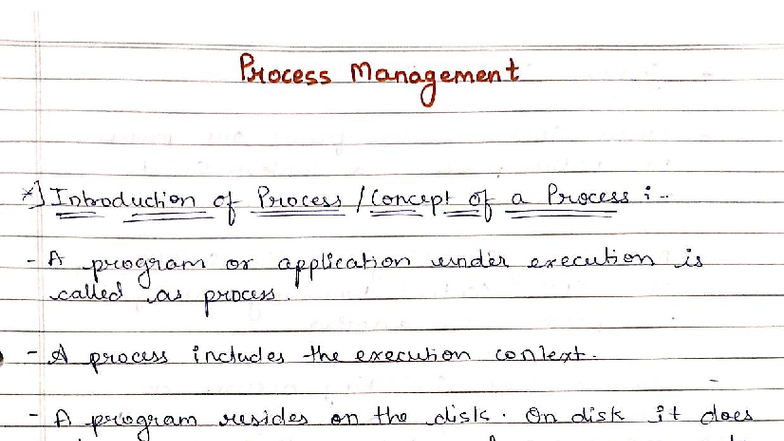 Process Management
*] Introduction of Process / Concept of a Process :-
- A program or application under execution is
called as process.
- A process includes the execution context.
- A program resides on the disk. On disk it does